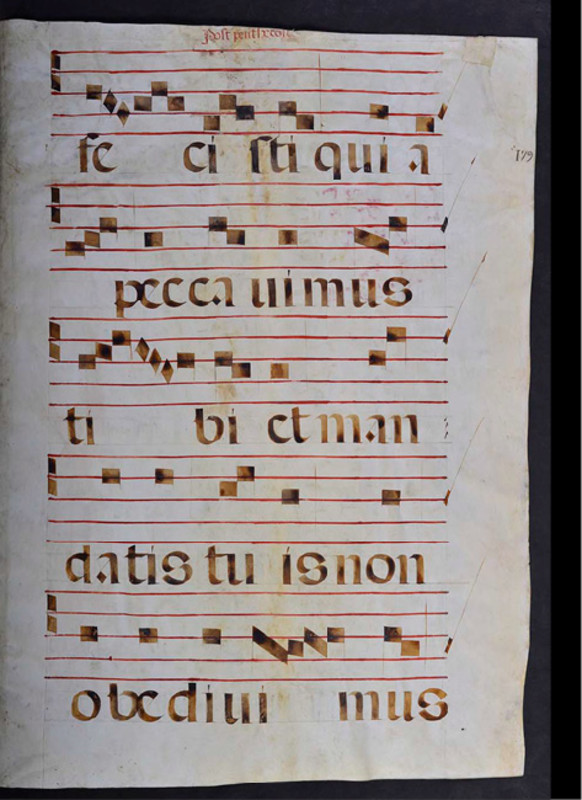 Post pentecost
199
fe ci sti qui a
pecca ui mus
ti bi et man
datis tu is non
obe diui mus